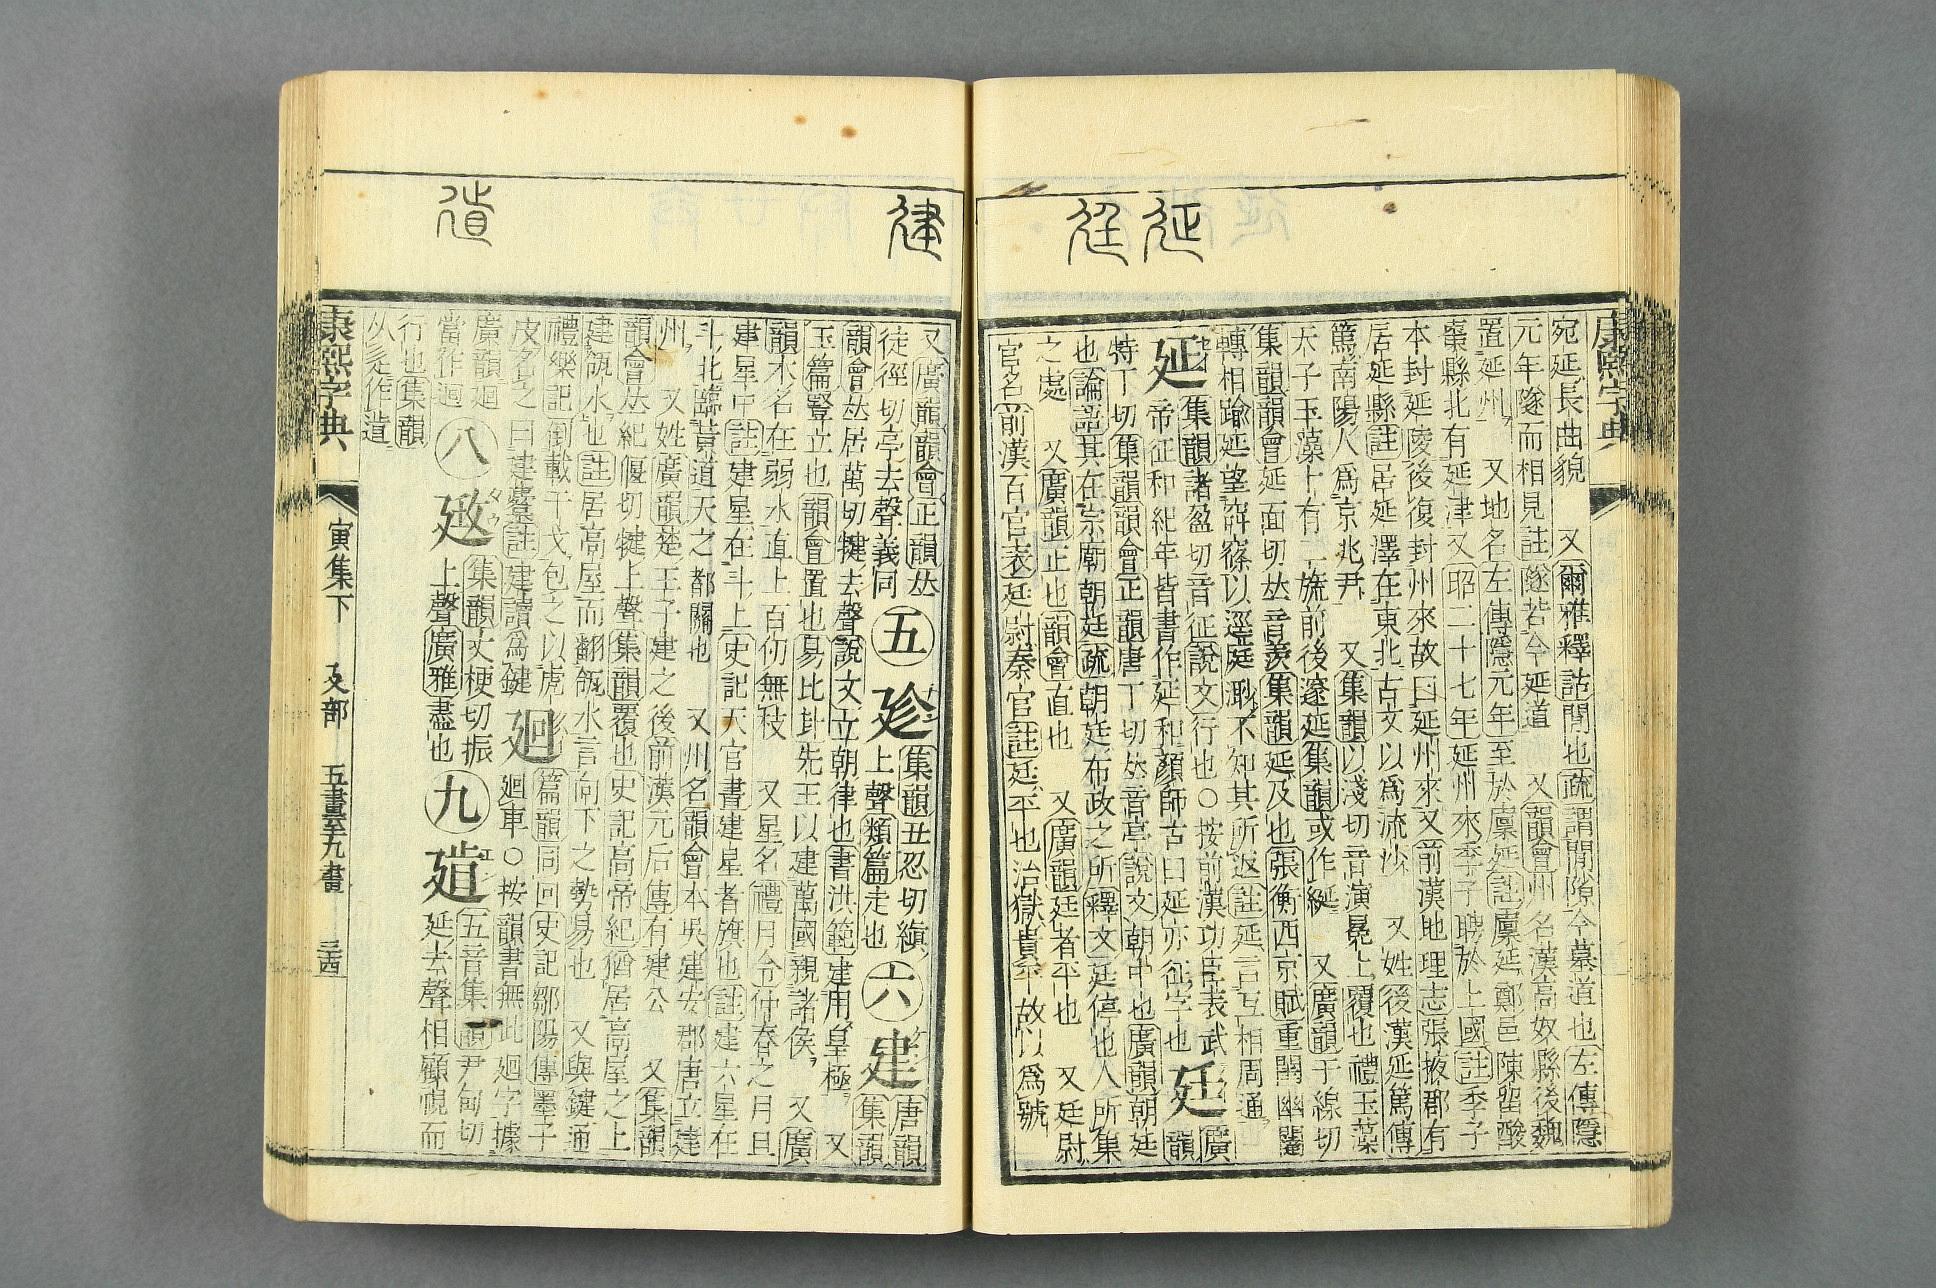 延 廷
康熙字典
宛延長曲貌 又爾雅釋詁閒也疏謂閒隙今墓道也左傳隱
元年隧而相見註隧若今延道 又韻會州名漢高奴縣後魏
置延州 又地名左傳隱元年至於廩延註廩延鄭邑陳留酸
棗縣北有延津又昭二十七年延州來季子聘於上國註季子
本封延陵後復封州來故曰延州來又前漢地理志張掖郡有
居延縣註居延澤在東北古文以爲流沙 又姓後漢延篤傳
篤南陽人爲京兆尹 又集韻以淺切音演冕上覆也禮玉藻
天子玉藻十有二旒前後邃延集韻或作綖 又廣韻于線切
集韻韻會延面切𠀤音羨集韻延及也張衡西京賦重閨幽闥
轉相踰延望𥥻窱以逕廷眇不知其所返註延言互相周通
延集韻諸盈切音征說文行也○按前漢功臣表武
帝延和紀年皆書作延和顏師古曰延亦征字也
廷廣韻
特丁切集韻韻會正韻唐丁切𠀤音亭說文朝中也廣韻朝廷
也論語其在宗廟朝廷疏朝廷布政之所釋文廷停也人所集
之處 又廣韻正也韻會直也 又廣韻廷者平也 又廷尉
官名前漢百官表廷尉秦官註廷平也治獄貴平故以爲號
建 𨖷
又廣韻韻會正韻𠀤
徒徑切亭去聲義同
五
㢻
集韻丑忍切縝
上聲類篇走也
六
建
唐韻
集韻
韻會𠀤居萬切犍去聲說文立朝律也書洪範建用皇極 又
玉篇豎立也韻會置也易比卦先王以建萬國親諸侯 又廣
韻木名在弱水直上百仞無枝 又星名禮月令仲春之月旦
建星中註建星在斗上史記天官書建星者旗也註建六星在
斗北臨黃道天之都關也 又州名韻會本吳建安郡唐立建
州 又姓廣韻楚王子建之後前漢元后傳有建公 又集韻
韻會𠀤紀偃切犍上聲集韻覆也史記高帝紀猶居高屋之上
建瓴水也註居高屋而翻瓴水言向下之勢易也 又與鍵通
禮樂記倒載干戈包之以虎
皮名之曰建櫜註建讀爲鍵
廻
篇韻同回史記鄒陽傳墨子
廻車○按韻書無此廻字據
廣韻廻
當作迴
八
集韻丈梗切振
上聲廣雅盡也
九
五音集韻尹旬切
延去聲相顧視而
行也集韻
从辵作
康熙字典
寅集下 廴部 五畫至九畫 三四